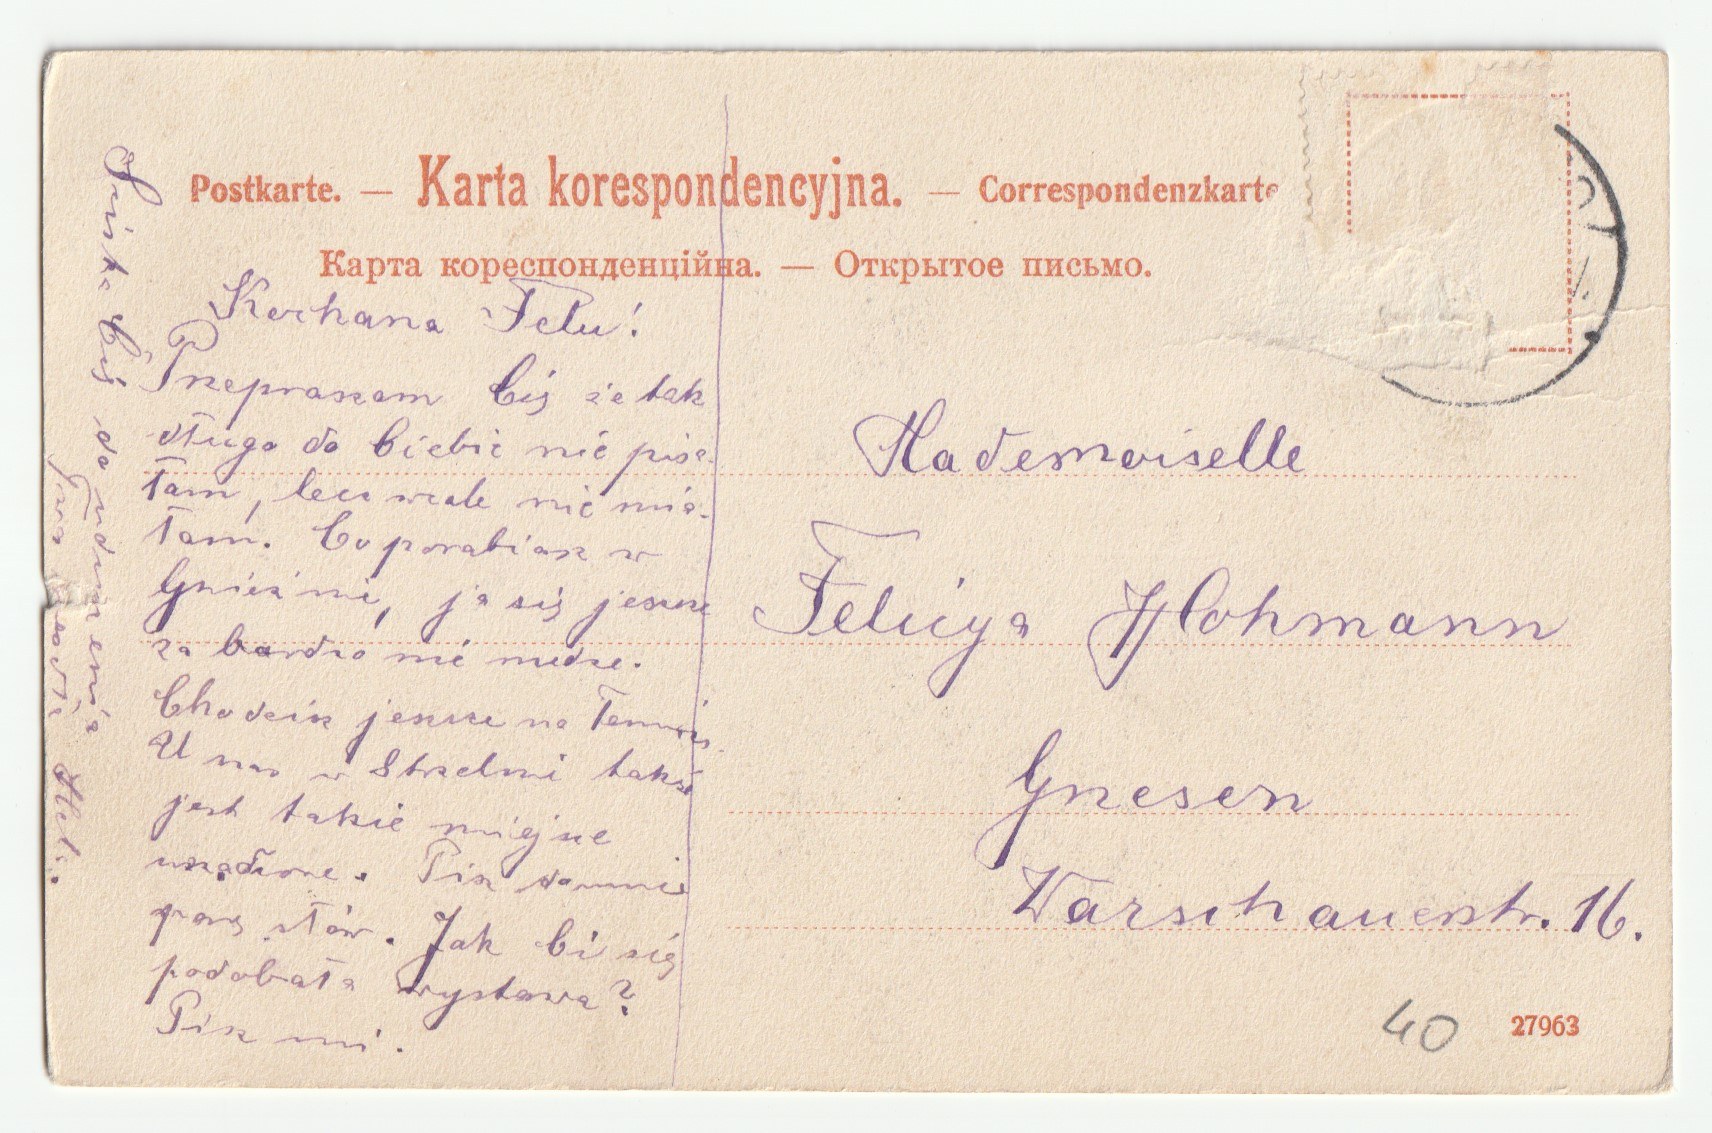 Postkarte. — Karta korespondencyjna. — Correspondenzkarte
Карта кореспонденційна. — Открытое письмо.
Kochana Felu!
Przepraszam Cię że tak
długo do Ciebie nie pisa-
łam, lecz wcale nie mia-
łam. Co porabiasz w
Gnieźnie, ja się jeszcze
za bardzo nie nudzę.
Chodzisz jeszcze na Tennis.
U nas w Strzelnie także
jest takie miejsce
urządzone. Pisz do mnie
parę słów. Jak Ci się
podobała wystawa?
Pisz mi.
Ściskam Cię do uduszenia
Twa Hel.
Mademoiselle
Felicya Hohmann
Gnesen
Warschauerstr. 16.
40
27963